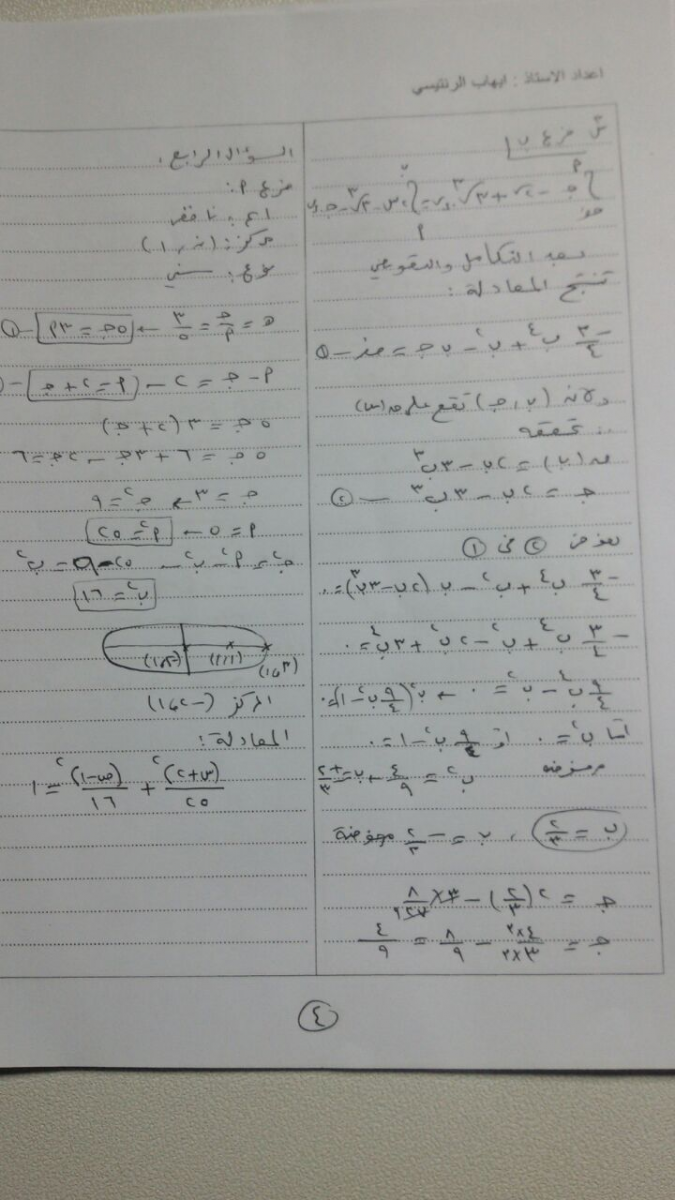 اعداد الاستاذ : ايهاب الرنتيسي
فرع ب
بعد التكامل والتعويض
تنتج المعادلة :
-٣/٤ ب٤ + ب٢ - ب جـ = صفر - ①
ولانه (ب ، جـ) تقع على ق(س)
∴ تحققه
ق(ب) = ٢ب - ٣ب٣
جـ = ٢ب - ٣ب٣ - ②
بعوض ② في ①
-٣/٤ ب٤ + ب٢ - ب (٢ب - ٣ب٣) = ٠
-٣/٤ ب٤ + ب٢ - ٢ب٢ + ٣ب٤ = ٠
٩/٤ ب٤ - ب٢ = ٠ ← ب٢ (٩/٤ ب٢ - ١) = ٠
اما ب٢ = ٠ او ٩/٤ ب٢ - ١ = ٠
مرفوضه ب٢ = ٤/٩ ← ب = ±٢/٣
ب = ٢/٣ ، ب = -٢/٣ مرفوضة
جـ = ٢(٢/٣) - ٣ × ٨/٢٧
جـ = ٤×٣/٣×٣ - ٨/٩ = ٤/٩
السؤال الرابع :
فرع ٢ :
نوع : ناقص
مركز : ( ، ١)
نوع : سيني
هـ = جـ/٢ = ٣/٥ ← ٥جـ = ٢٣ - ①
٢ - جـ = ٢ ← ٢ = ٢ + جـ
٥جـ = ٣ (٢ + جـ)
٥جـ = ٦ + ٣جـ ← ٢جـ = ٦
جـ = ٣ ← جـ٢ = ٩
٢ = ٥ ← ٢٢ = ٢٥
جـ٢ = ٢٢ - ب٢ ← ٩ = ٢٥ - ب٢
ب٢ = ١٦
(٣،١)
المركز (-٢،١)
المعادلة :
(س+٢)٢/٢٥ + (ص-١)٢/١٦ = ١
٤